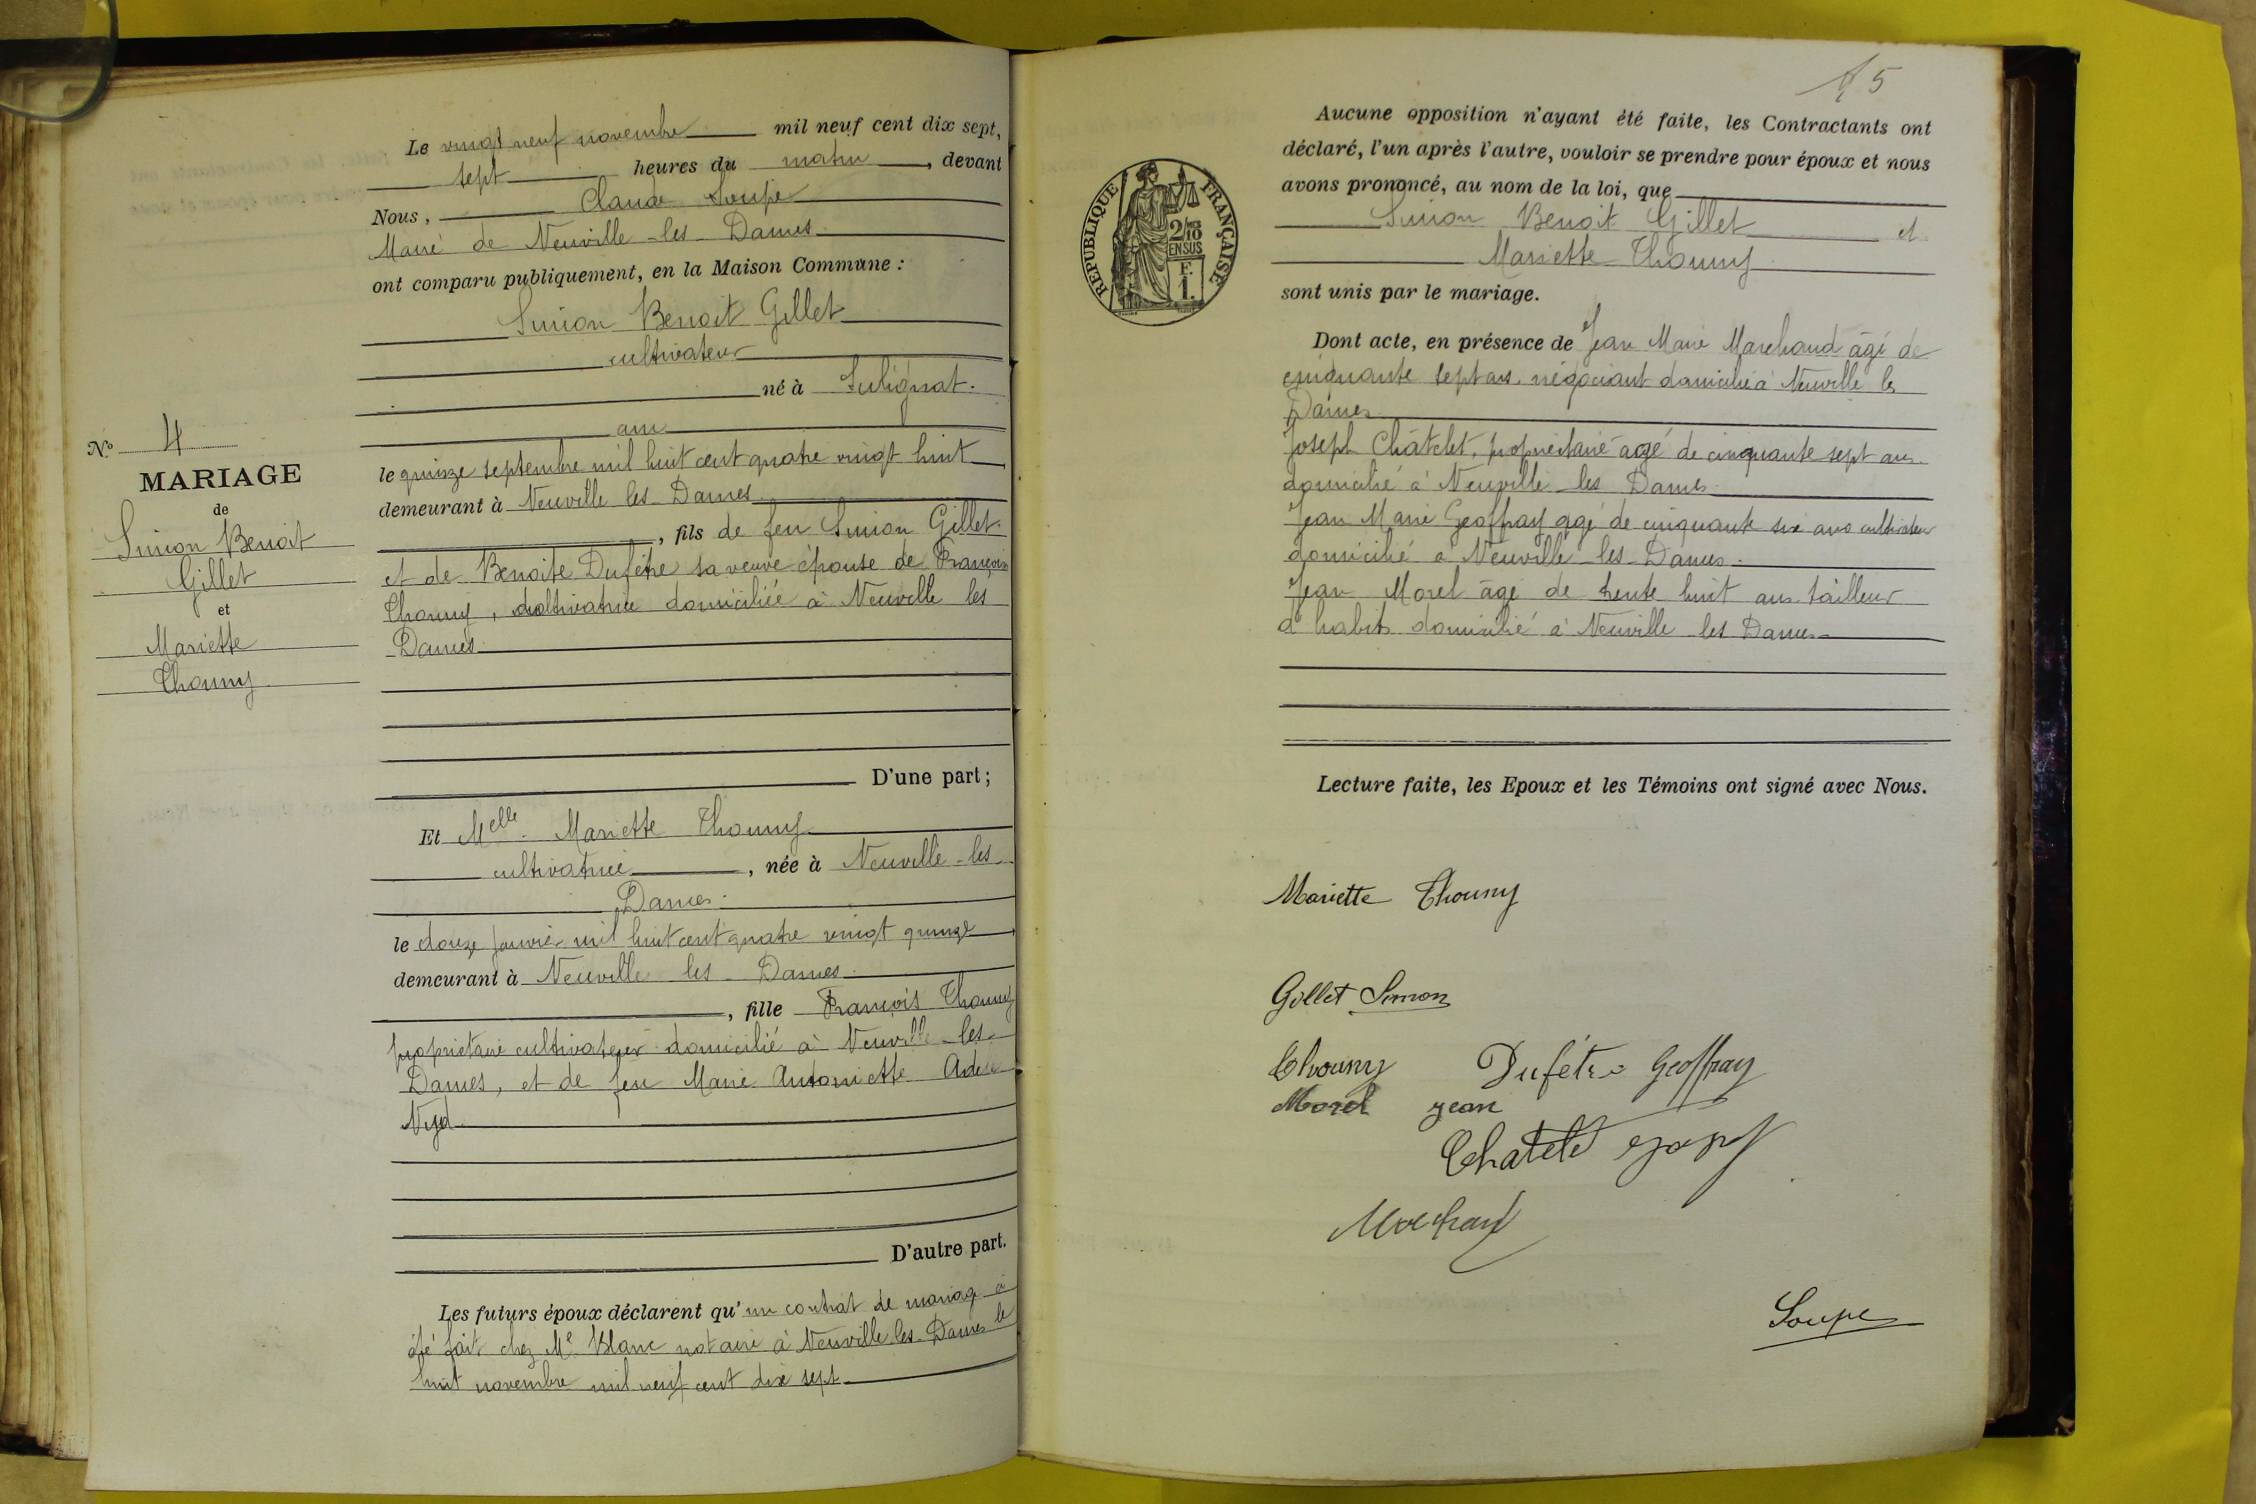 Le vingt neuf novembre mil neuf cent dix sept,
sept heures du matin, devant
Nous, Claude Soupe
Maire de Neuville-les-Dames
ont comparu publiquement, en la Maison Commune :
Simon Benoit Gillet
cultivateur
né à Sulignat.
ain
le quinze septembre mil huit cent quatre vingt huit
demeurant à Neuville les Dames
, fils de feu Simon Gillet
et de Benoite Dufêtre sa veuve épouse de François
Thouny, cultivatrice domiciliée à Neuville les
Dames
D'une part;
N° 4
MARIAGE
de
Simon Benoit
Gillet
et
Mariette
Thouny
Et Melle Mariette Thouny
cultivatrice, née à Neuville-les
Dames.
le douze janvier mil huit cent quatre vingt quinze
demeurant à Neuville les Dames
, fille François Thouny
propriétaire cultivateur domicilié à Neuville-les-
Dames, et de feu Marie Antoinette
D'autre part.
Les futurs époux déclarent qu'un contrat de mariage a
été fait chez Me Blanc notaire à Neuville les Dames le
huit novembre mil neuf cent dix sept
5
RÉPUBLIQUE FRANÇAISE
2/10
EN SUS
F.
1.
Aucune opposition n'ayant été faite, les Contractants ont
déclaré, l'un après l'autre, vouloir se prendre pour époux et nous
avons prononcé, au nom de la loi, que
Simon Benoit Gillet et
Mariette Thouny
sont unis par le mariage.
Dont acte, en présence de Jean Marie Marchand âgé de
cinquante sept ans négociant domicilié à Neuville les
Dames
Joseph Châtelet, propriétaire âgé de cinquante sept ans
domicilié à Neuville les Dames
Jean Marie Geoffray âgé de cinquante six ans cultivateur
domicilié à Neuville-les-Dames.
Jean Morel âgé de trente huit ans tailleur
d'habits domicilié à Neuville les Dames
Lecture faite, les Epoux et les Témoins ont signé avec Nous.
Mariette Thouny
Gillet Simon
Thouny Dufêtre Geoffray
Morel jean
Chatelet
Marchand
Soupe